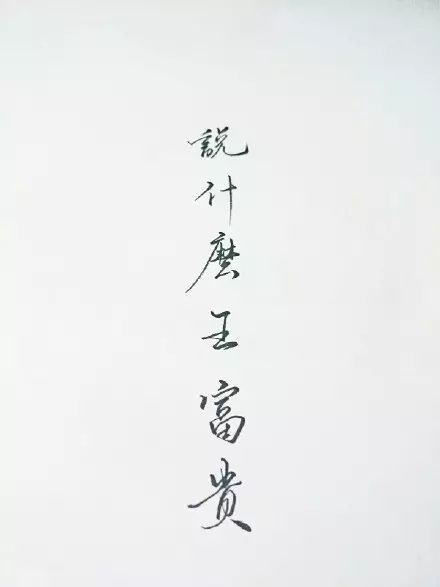 說什麼王富貴